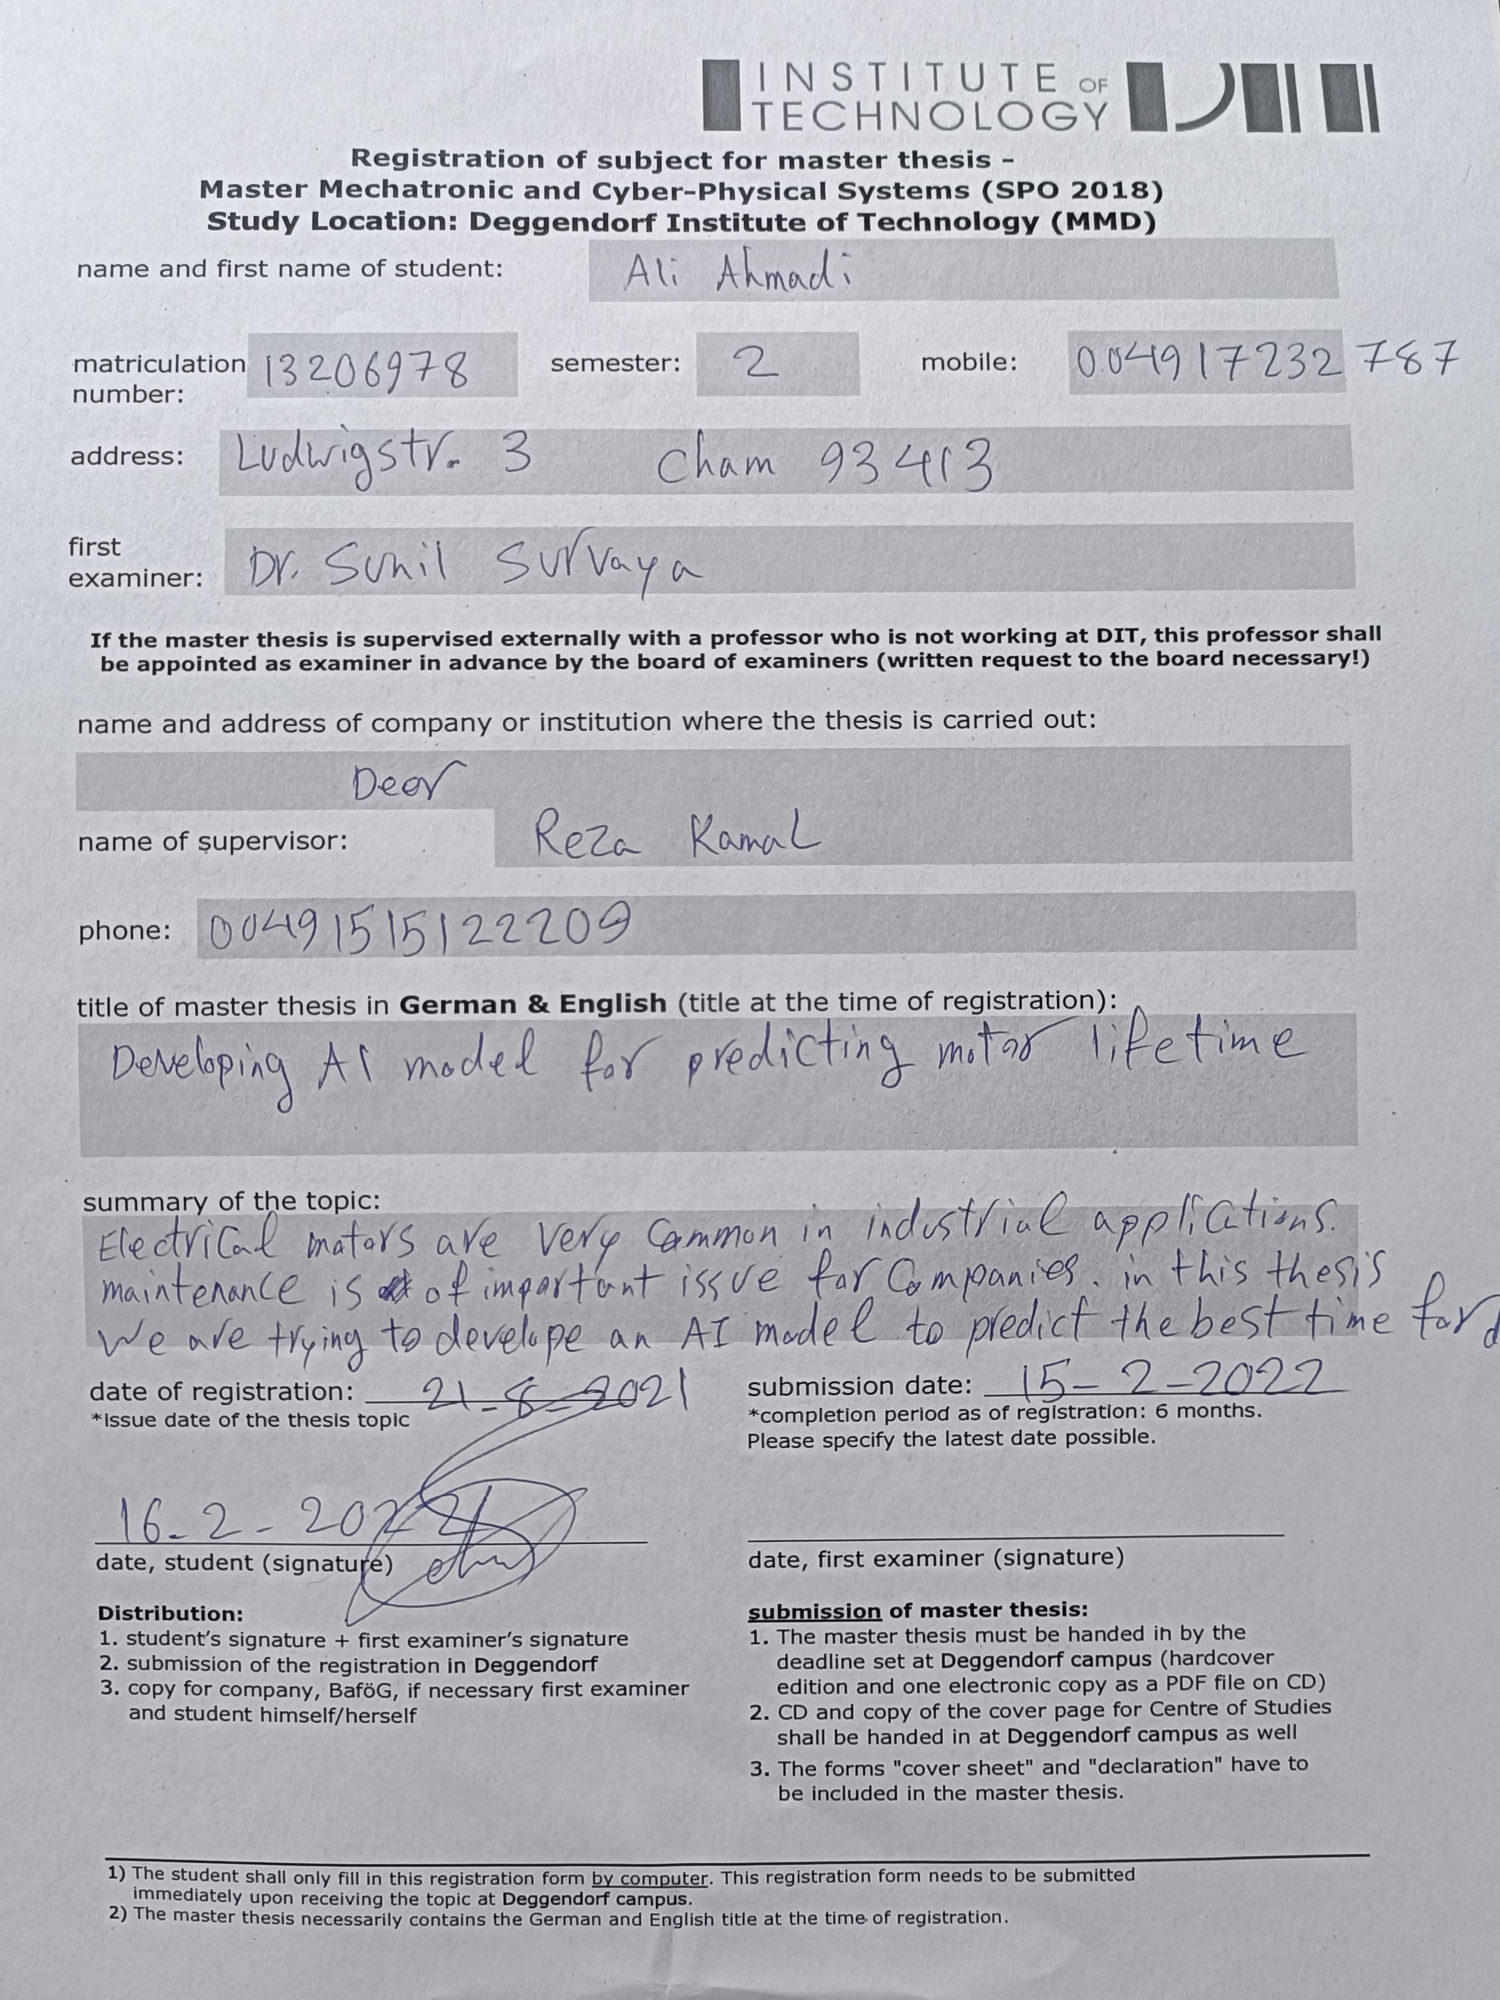 INSTITUTE OF
TECHNOLOGY
Registration of subject for master thesis -
Master Mechatronic and Cyber-Physical Systems (SPO 2018)
Study Location: Deggendorf Institute of Technology (MMD)
name and first name of student: Ali Ahmadi
matriculation number: 13206978 semester: 2 mobile: 004917232787
address: Ludwigstr. 3 Cham 93413
first examiner: Dr. Sunil Survaya
If the master thesis is supervised externally with a professor who is not working at DIT, this professor shall
be appointed as examiner in advance by the board of examiners (written request to the board necessary!)
name and address of company or institution where the thesis is carried out:
Deor
name of supervisor: Reza Kamal
phone: 00491515122209
title of master thesis in German & English (title at the time of registration):
Developing AI model for predicting motor lifetime
summary of the topic:
Electrical motors are very common in industrial applications.
maintenance is of important issue for Companies. in this thesis
we are trying to develope an AI model to predict the best time for
date of registration: 21-8-2021 submission date: 15-2-2022
*issue date of the thesis topic
*completion period as of registration: 6 months.
Please specify the latest date possible.
16-2-2022
date, student (signature) date, first examiner (signature)
Distribution:
1. student's signature + first examiner's signature
2. submission of the registration in Deggendorf
3. copy for company, BaföG, if necessary first examiner
and student himself/herself
submission of master thesis:
1. The master thesis must be handed in by the
deadline set at Deggendorf campus (hardcover
edition and one electronic copy as a PDF file on CD)
2. CD and copy of the cover page for Centre of Studies
shall be handed in at Deggendorf campus as well
3. The forms "cover sheet" and "declaration" have to
be included in the master thesis.
1) The student shall only fill in this registration form by computer. This registration form needs to be submitted
immediately upon receiving the topic at Deggendorf campus.
2) The master thesis necessarily contains the German and English title at the time of registration.